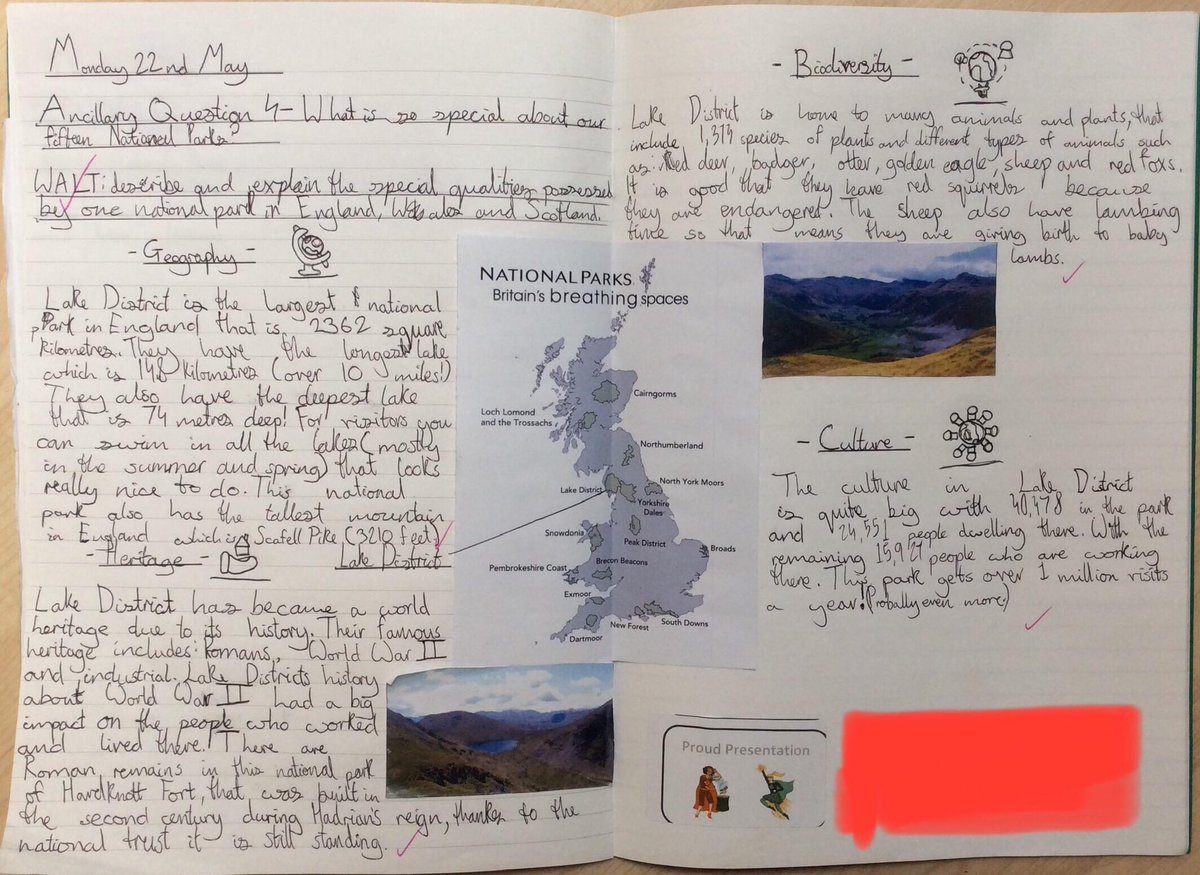 Monday 22nd May
Ancillary Question 4 - What is so special about our
fifteen National Parks?
WALT: describe and explain the special qualities possessed
by one national park in England, Wales and Scotland.
- Geography -
Lake District is the largest national
park in England that is 2362 square
kilometres. They have the longest lake
which is 148 kilometres (over 10 miles!)
They also have the deepest lake
that is 74 metres deep! For visitors you
can swim in all the lakes (mostly
in the summer and spring) that looks
really nice to do. This national
park also has the tallest mountain
in England which is Scafell Pike (3210 feet)
- Heritage -
Lake District
Lake District has became a world
heritage due to its history. Their famous
heritage includes: Romans, World War II
and industrial. Lake Districts history
about World War II had a big
impact on the people who worked
and lived there! There are
Roman remains in this national park
of Hardknott Fort, that was built in
the second century during Hadrian's reign, thanks to the
national trust it is still standing.
NATIONAL PARKS
Britain's breathing spaces
Cairngorms
Loch Lomond
and the Trossachs
Northumberland
Lake District
North York Moors
Yorkshire
Dales
Snowdonia
Peak District
Broads
Brecon Beacons
Pembrokeshire Coast
Exmoor
South Downs
New Forest
Dartmoor
- Biodiversity -
Lake District is home to many animals and plants, that
include 1,374 species of plants and different types of animals such
as: Red deer, badger, otter, golden eagle, sheep and red foxs.
It is good that they have red squirrels because
they are endangered. The sheep also have lambing
time so that means they are giving birth to baby
lambs.
- Culture -
The culture in Lake District
is quite big with 40,478 in the park
and 24,551 people dwelling there. With the
remaining 15,927 people who are working
there. This park gets over 1 million visits
a year! (Probally even more)
Proud Presentation